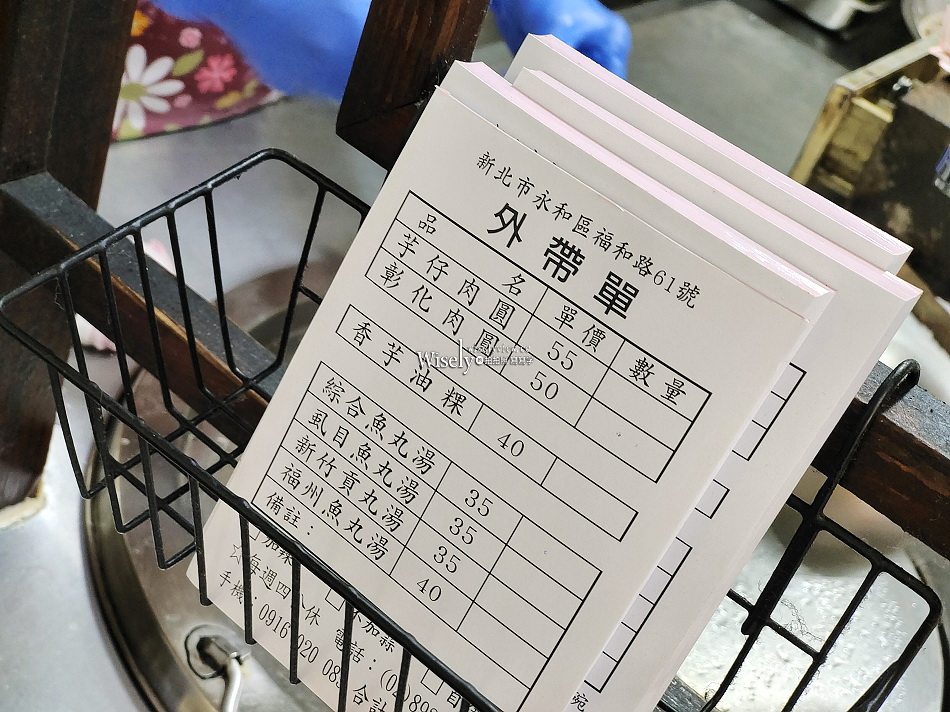 新北市永和區福和路61號
外帶單
品名 單價 數量
芋仔肉圓 55
彰化肉圓 50
香芋油粿 40
綜合魚丸湯 35
虱目魚丸湯 35
新竹貢丸湯 35
福州魚丸湯 40
備註：
□加辣 □不加蒜 □
☆每週四公休 電話：(02)
手機：0916 020 08
合計
Wisely